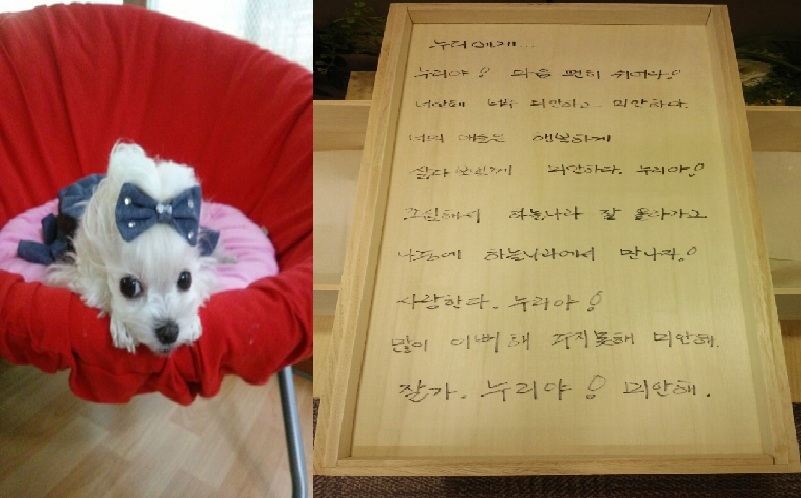 누리에게...
누리야! 마음 편히 쉬어라!
너한테 너무 미안하고 미안하다.
행복하게
미안하다. 누리야!
조심해서 하늘나라 잘 올라가고
나중에 하늘나라에서 만나자!
사랑한다. 누리야!
많이 이뻐해 주지못해 미안해.
잘가. 누리야! 미안해.